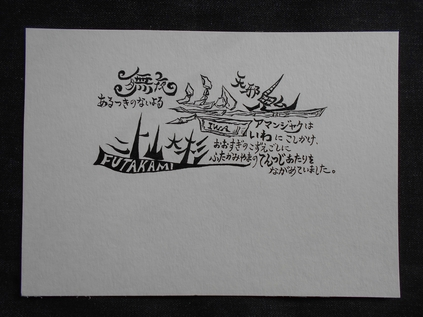 無夜
あるつきのないよる
天邪鬼
IWA
アマンジャクは
いわにこしかけ、
おおすぎのこずえごしに
ふたかみやまのてっぺんあたりを
ながめていました。
二上山 大杉
FUTAKAMI